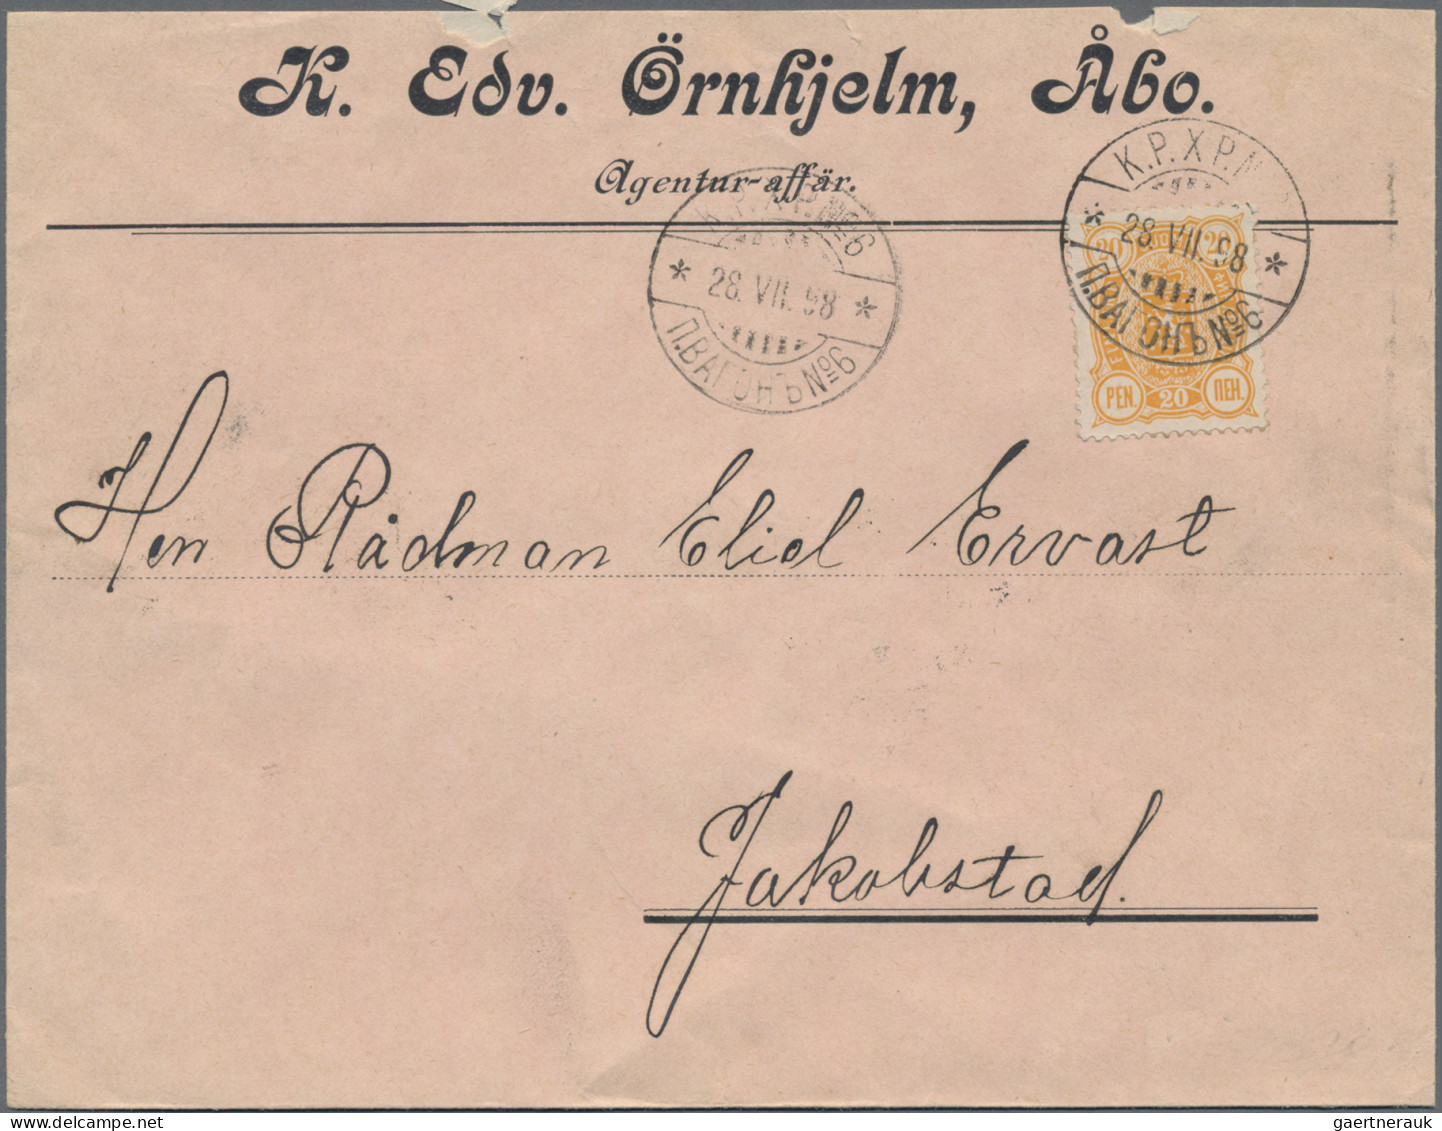 K. Edv. Örnhjelm, Åbo.
Agentur-affär.
К.Р.Х.Р.№6
28. VII. 98
П.ВАГОНЪ №6
К.Р.Х.Р.
28. VII. 98
П.ВАГОНЪ №6
20 20
PEN. 20 ПЕН.
Herr Rådman Eliel Ervast
Jakobstad.
gaertnerauk